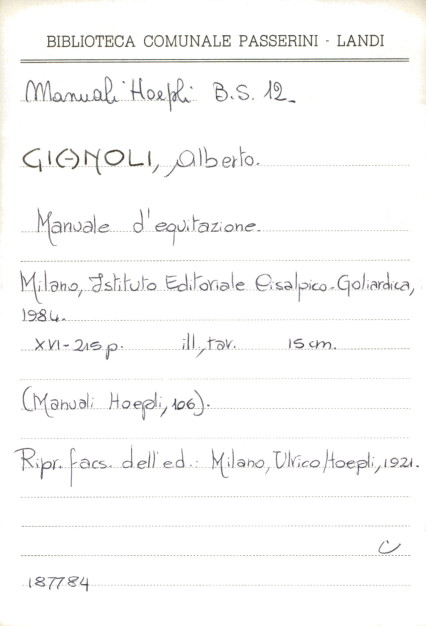 BIBLIOTECA COMUNALE PASSERINI - LANDI
Manuali Hoepli B.S. 12
Alberto.
Manuale d'equitazione.
Milano, Istituto Editoriale Cisalpico-Goliardica,
1984.
XVI-215 p. ill., tav. 15 cm.
(Manuali Hoepli, 106).
Ripr. facs. dell'ed.: Milano, Ulrico Hoepli, 1921.
187784